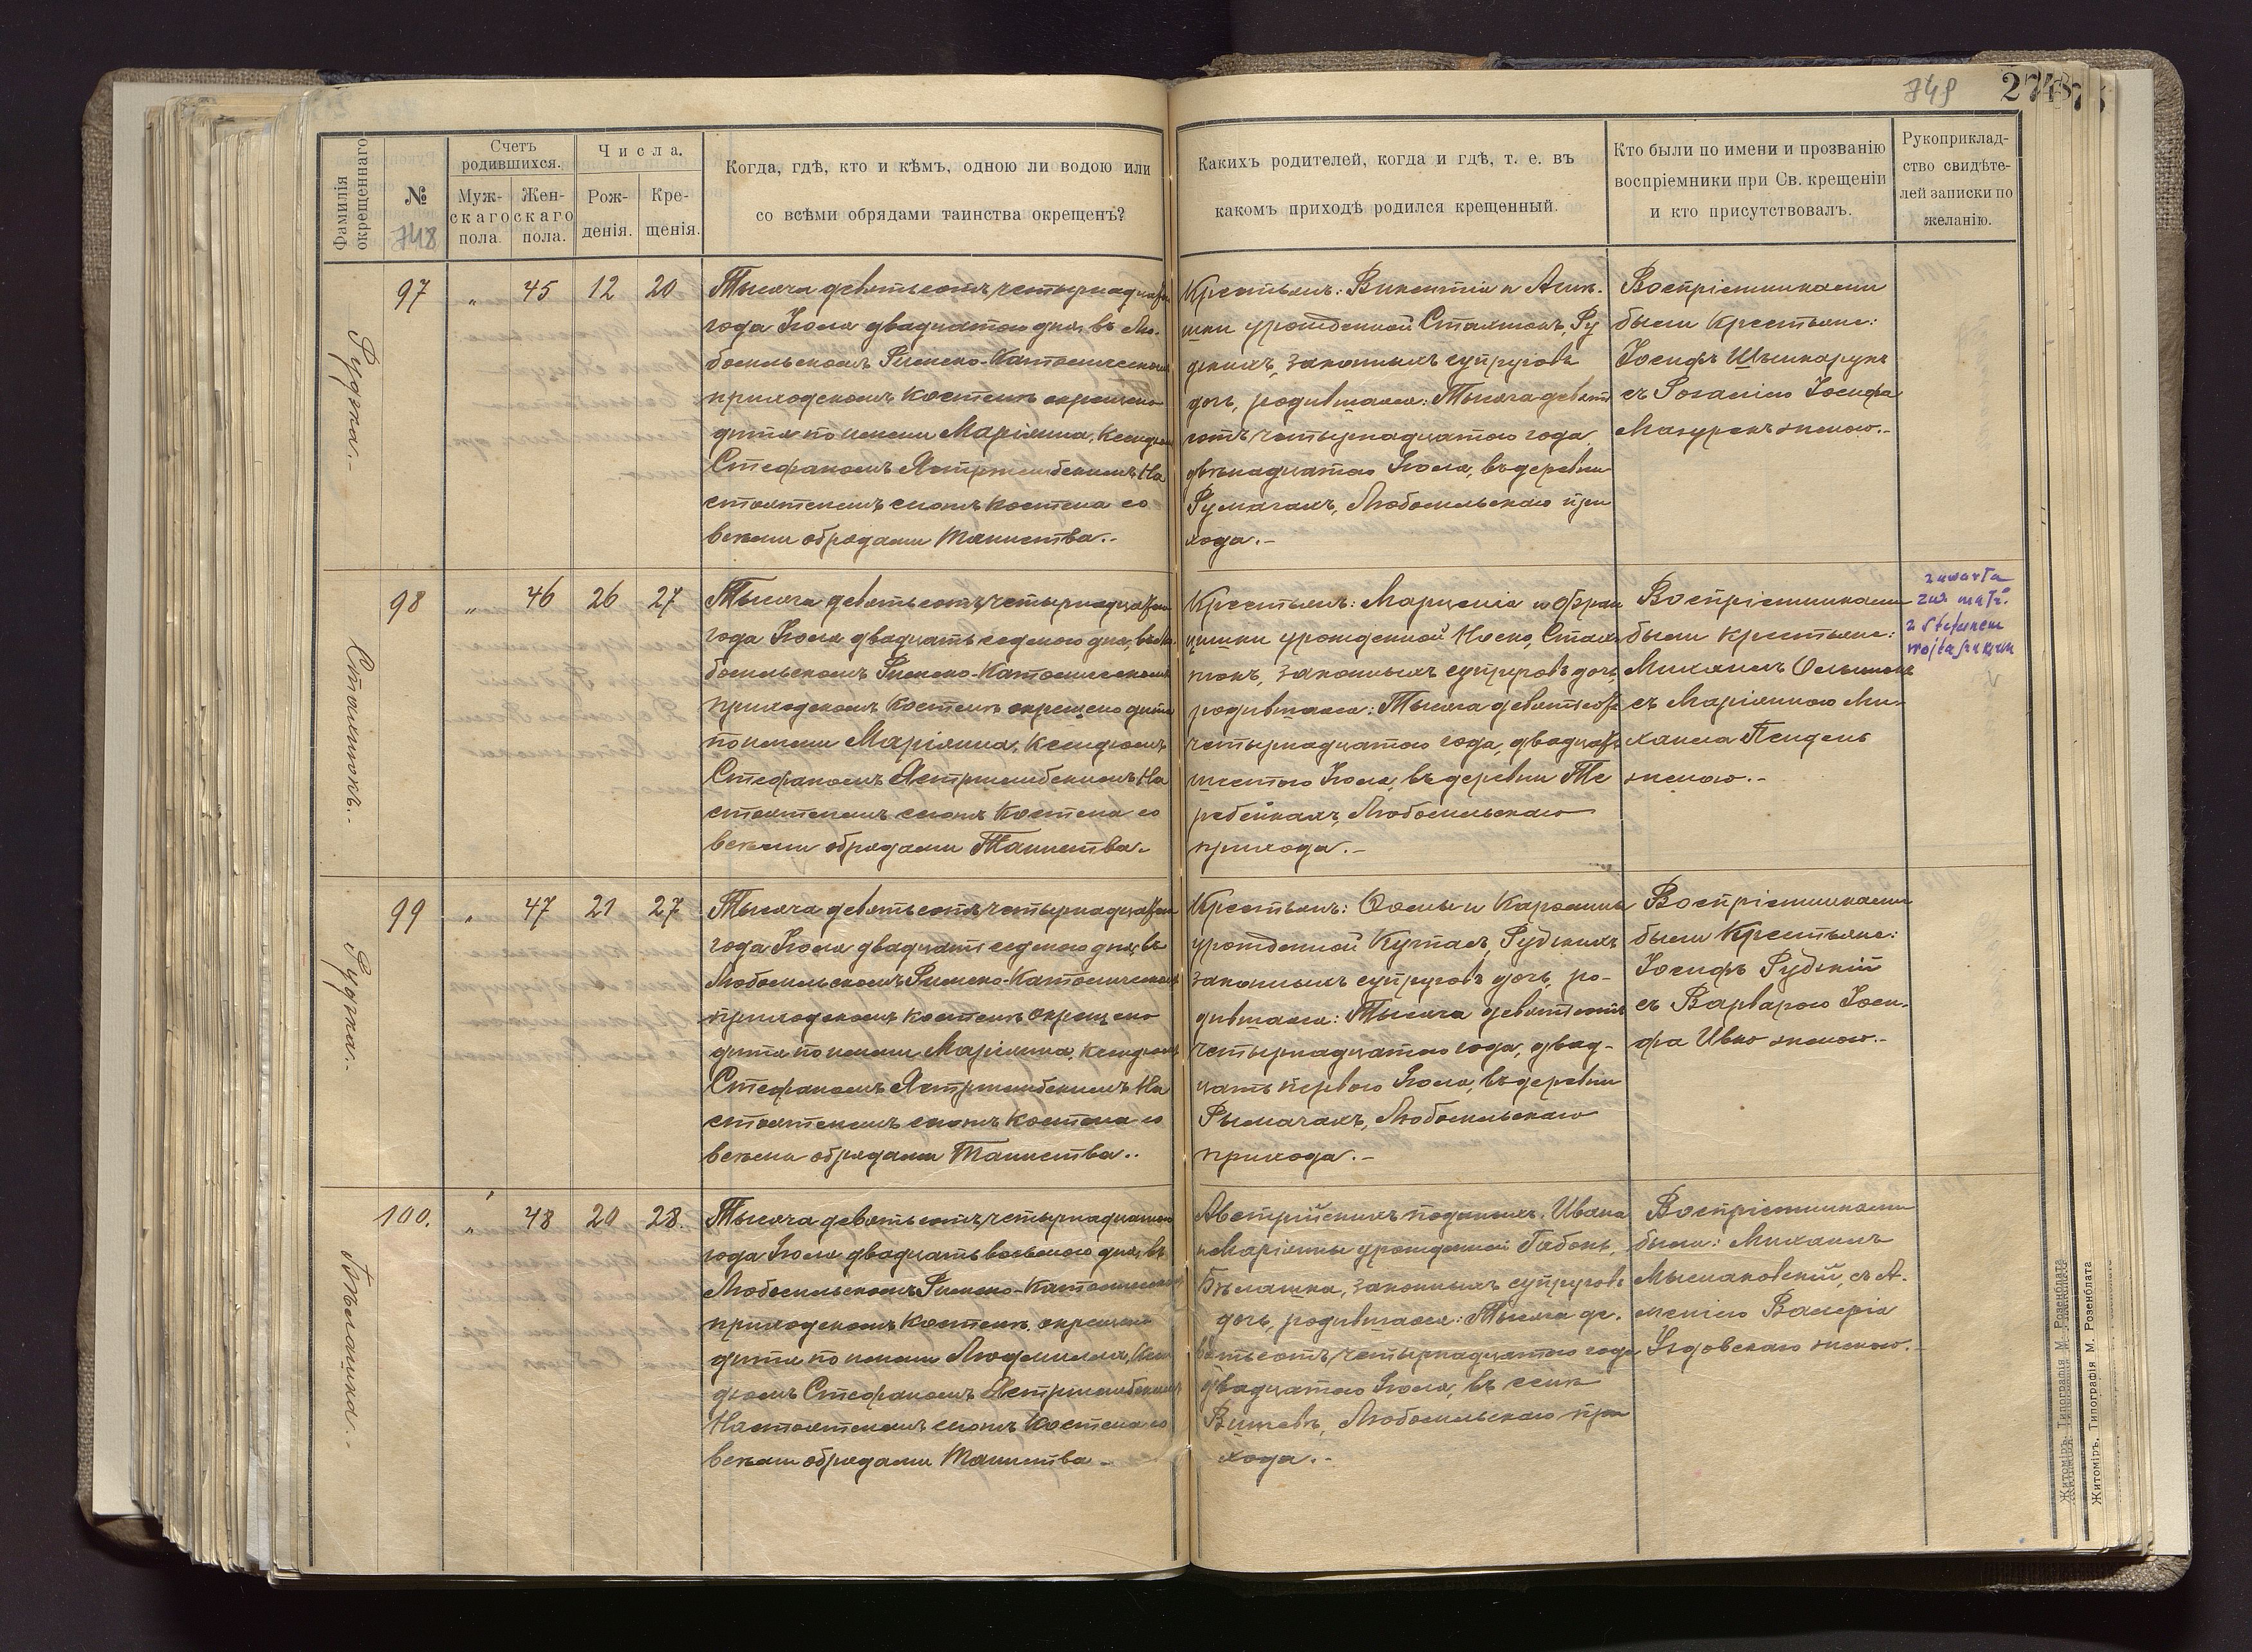 749 274
Фамилія окрещеннаго
№
748
Счетъ родившихся.
Муж-
скаго
пола.
Жен-
скаго
пола.
Числа.
Рож-
денія.
Кре-
щенія.
Когда, гдѣ, кто и кѣмъ, одною ли водою или
со всѣми обрядами таинства окрещенъ?
Какихъ родителей, когда и гдѣ, т. е. въ
какомъ приходѣ родился крещенный.
Кто были по имени и прозванію
воспріемники при Св. крещеніи
и кто присутствовалъ.
Рукоприклад-
ство свидѣте-
лей записки по
желанію.
97 " 45 12 20
Тысяча девятьсотъ четырнадцатаго
года Іюля двадцатаго дня, въ Лю-
бомльскомъ Римско-Католическомъ
приходскомъ костелѣ окрещено
дитя по имени Маріанна, Ксендзомъ
Стефаномъ Ястржембскимъ На
стоятелемъ сего костела со
всѣми обрядами Таинства.-
Крестьянъ: Викентія и
урожденной Стахнюкъ, Ру
дскихъ, законныхъ супруговъ
дочь, родившаяся: Тысяча девять
сотъ четырнадцатаго года
двѣнадцатаго Іюля, въ деревни
Любомльскаго при
хода.-
Воспріемниками
были крестьяне:
Іосифъ
съ Іосифа
Мазурекъ женою.-
98 " 46 26 27
Стахнюкъ.-
Тысяча девятьсотъ четырнадцатаго
года Іюля двадцать седьмого дня, въ Лю
бомльскомъ Римско-Католическомъ
приходскомъ костелѣ окрещено дитя
по имени Маріанна, Ксендзомъ
Стефаномъ Ястржембскимъ На
стоятелемъ сего костела со
всѣми обрядами Таинства.-
Крестьянъ: Марцелія и Фран
цишки урожденной Стах
нюкъ, законныхъ супруговъ дочь,
родившаяся: Тысяча девятьсотъ
четырнадцатаго года, двадцать
шестого Іюля, въ деревни Те
ребейкахъ, Любомльскаго
прихода.-
Воспріемниками
были крестьяне:
Михаилъ
съ Маріанною Ми-
хаила
женою.-
zawarła
zw. małż.
z Stefanem
99 " 47 21 27
Рудска.-
Тысяча девятьсотъ четырнадцатаго
года Іюля двадцать седьмого дня, въ
Любомльскомъ Римско-Католическомъ
приходскомъ костелѣ окрещено
дитя по имени Маріанна, Ксендзомъ
Стефаномъ Ястржембскимъ На
стоятелемъ сего костела со
всѣми обрядами Таинства.-
Крестьянъ: Фомы и Каролины
урожденной Рудскихъ
законныхъ супруговъ дочь, ро-
дившаяся: Тысяча девятьсотъ
четырнадцатаго года, двад-
цать перваго Іюля, въ деревни
Рымачахъ, Любомльскаго
прихода.-
Воспріемниками
были Крестьяне:
Іосифъ Рудскій
съ Варварою Іоси-
фа Ивко женою.-
100. " 48 20 28.
Бѣлашка.-
Тысяча девятьсотъ четырнадцатаго
года Іюля двадцать восьмого дня, въ
Любомльскомъ Римско-Католическомъ
приходскомъ костелѣ окрещено
дитя по имени Людмилла, Ксен
дзомъ Стефаномъ Ястржембскимъ
Настоятелемъ сего костела со
всѣми обрядами Таинства.-
Австрійскихъ подданныхъ: Ивана
и Маріанны урожденной
Бѣлашка, законныхъ супруговъ
дочь, родившаяся: Тысяча де-
вятьсотъ четырнадцатаго года
двадцатаго Іюля, въ селѣ
Любомльскаго при
хода.-
Воспріемниками
были: Михаилъ
съ А-
Валерія
женою.-
Житоміръ. Типографія М. Розенблата
Житоміръ. Типографія М. Розенблата